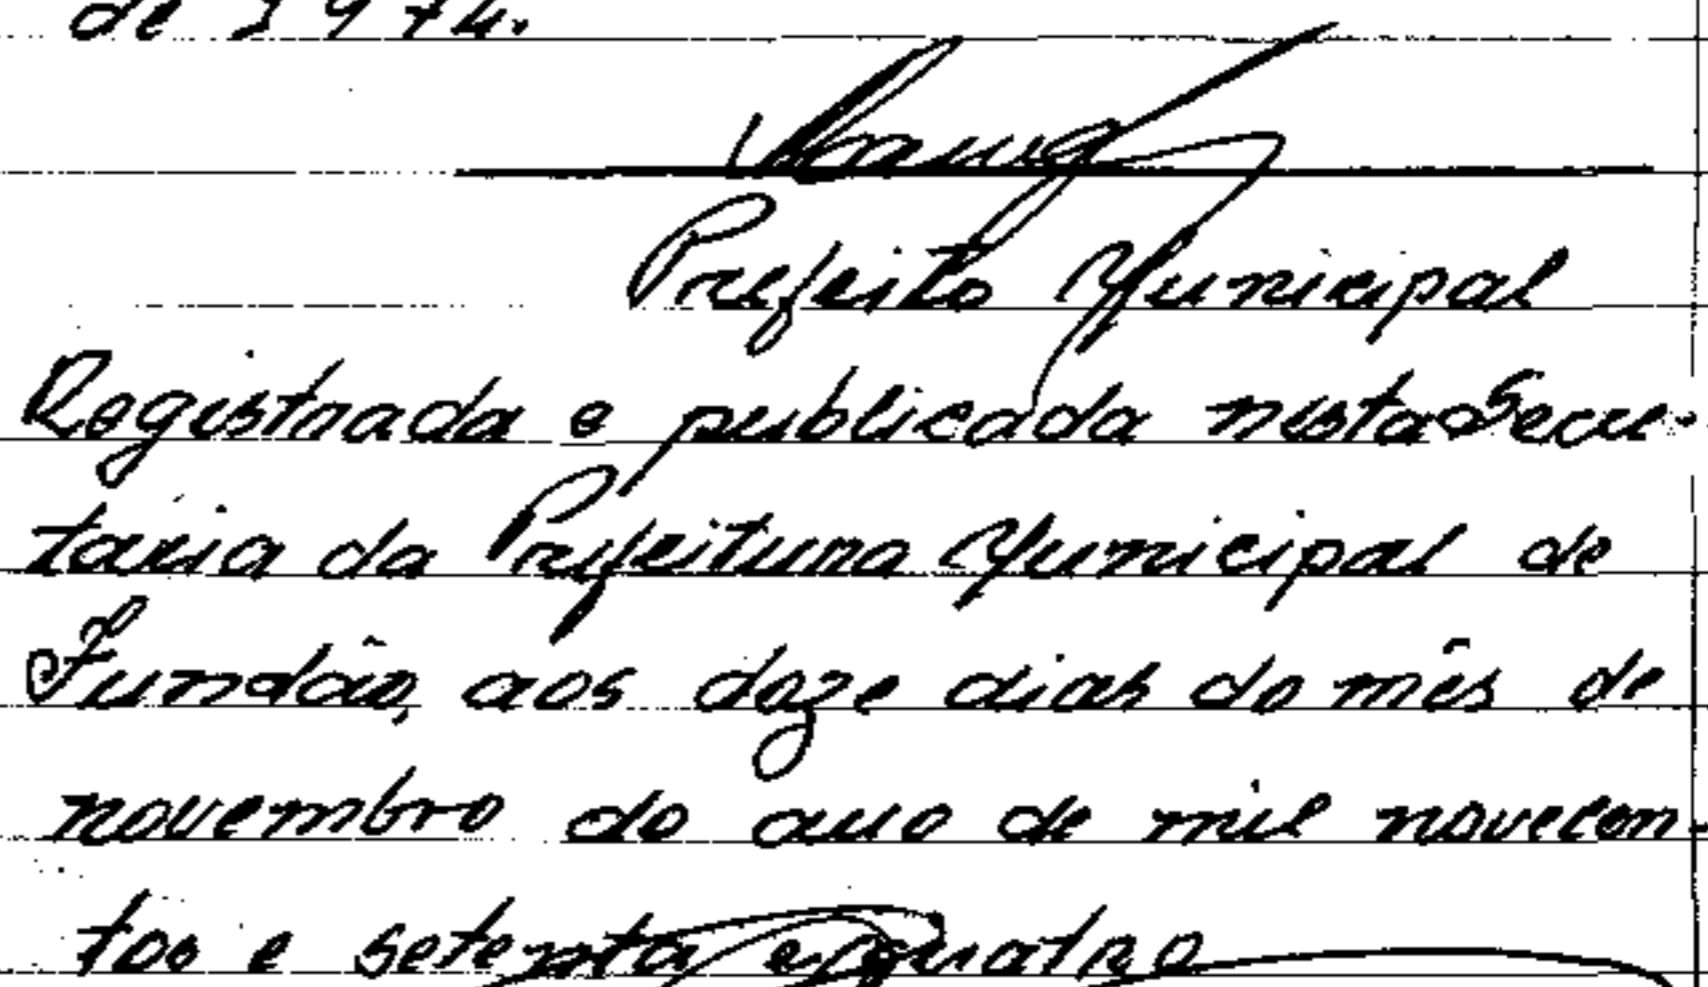 de 1974.
Prefeito Municipal
Registrada e publicada nesta Secre-
taria da Prefeitura Municipal de
Fundão, aos doze dias do mês de
novembro do ano de mil novecen-
tos e setenta e quatro